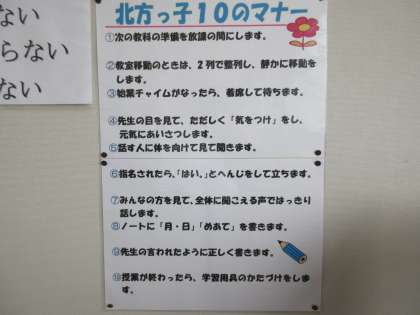 ない
らない
ない
北方っ子10のマナー
①次の教科の準備を放課の間にします。
②教室移動のときは、2列で整列し、静かに移動を
します。
③始業チャイムがなったら、着席して待ちます。
④先生の目を見て、ただしく「気をつけ」をし、
元気にあいさつします。
⑤話す人に体を向けて見て聞きます。
⑥指名されたら、「はい。」とへんじをして立ちます。
⑦みんなの方を見て、全体に聞こえる声ではっきり
話します。
⑧ノートに「月・日」「めあて」を書きます。
⑨先生の言われたように正しく書きます。
⑩授業が終わったら、学習用具のかたづけをしま
す。